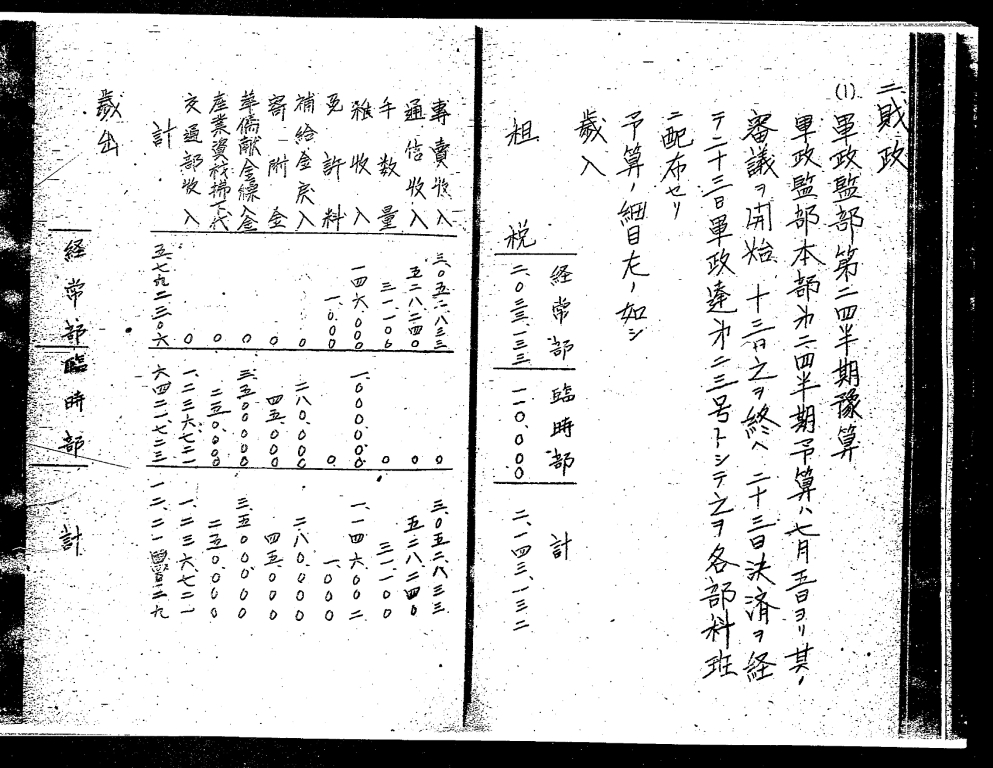 二財政
(1) 軍政監部第二四半期豫算
軍政監部本部オ二四半期予算ハ七月五日ヨリ其ノ
審議ヲ開始 十三日之ヲ終ヘ 二十三日決済ヲ経
テ二十三日軍政達オ二三号トシテ之ヲ各部科班
ニ配布セリ
予算ノ細目左ノ如シ
歳入
経常部 臨時部 計
租税 二.〇三三.一三二 一一〇.〇〇〇 二.一四三.一三二
専賣收入 三.〇五二.八三三 〇 三.〇五二.八三三
通信收入 五二八.二四〇 〇 五二八.二四〇
手数量 三一.一〇〇 〇 三一.一〇〇
雑收入 一四六.〇〇〇 一.〇〇〇.〇〇〇 一.一四六.〇〇二
免許料 一.〇〇〇 〇 一.〇〇〇
補給金戻入 〇 二八〇.〇〇〇 二八〇.〇〇〇
寄附金 〇 四五.〇〇〇 四五.〇〇〇
華僑献金繰入金 〇 三.五〇〇.〇〇〇 三.五〇〇.〇〇〇
産業資材拂下代 〇 二五〇.〇〇〇 二五〇.〇〇〇
交通部收入 〇 一.二三六.七二一 一.二三六.七二一
計 五.七九二.三〇六 六.四二一.七二三
歳出
経常部 臨時部 計